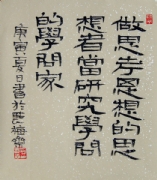 做思考思想的思
想者當研究學問
的學問家
庚寅夏日書於